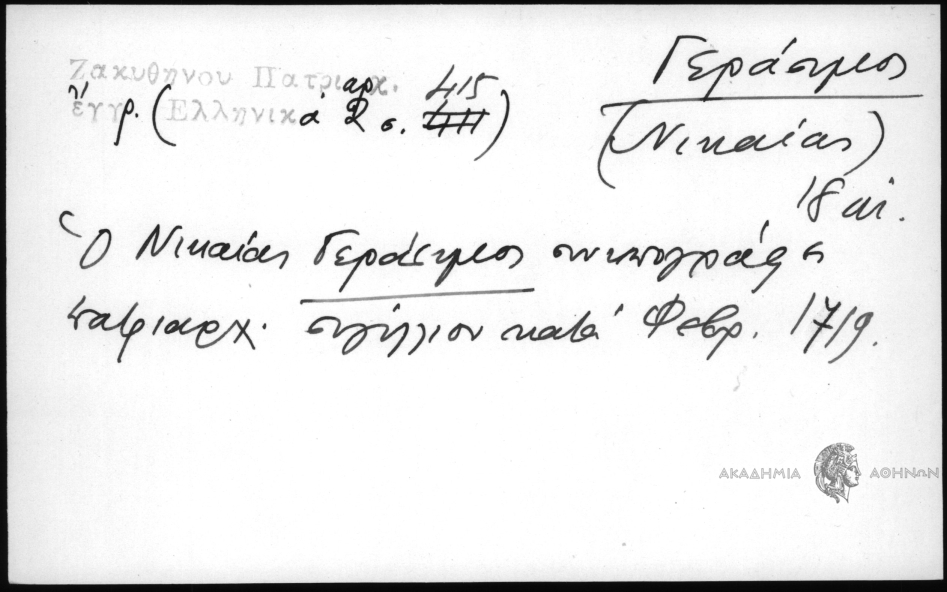 Ζακυθηνου Πατριαρχ.
έγγρ. (Ελληνικά 2 σ. 415)
Γεράσιμος
(Νικαίας)
18 αι.
Ὁ Νικαίας Γεράσιμος συνυπογράφει
πατριαρχ. σιγίλλιον κατά Φεβρ. 1719.
ΑΚΑΔΗΜΙΑ ΑΘΗΝΩΝ